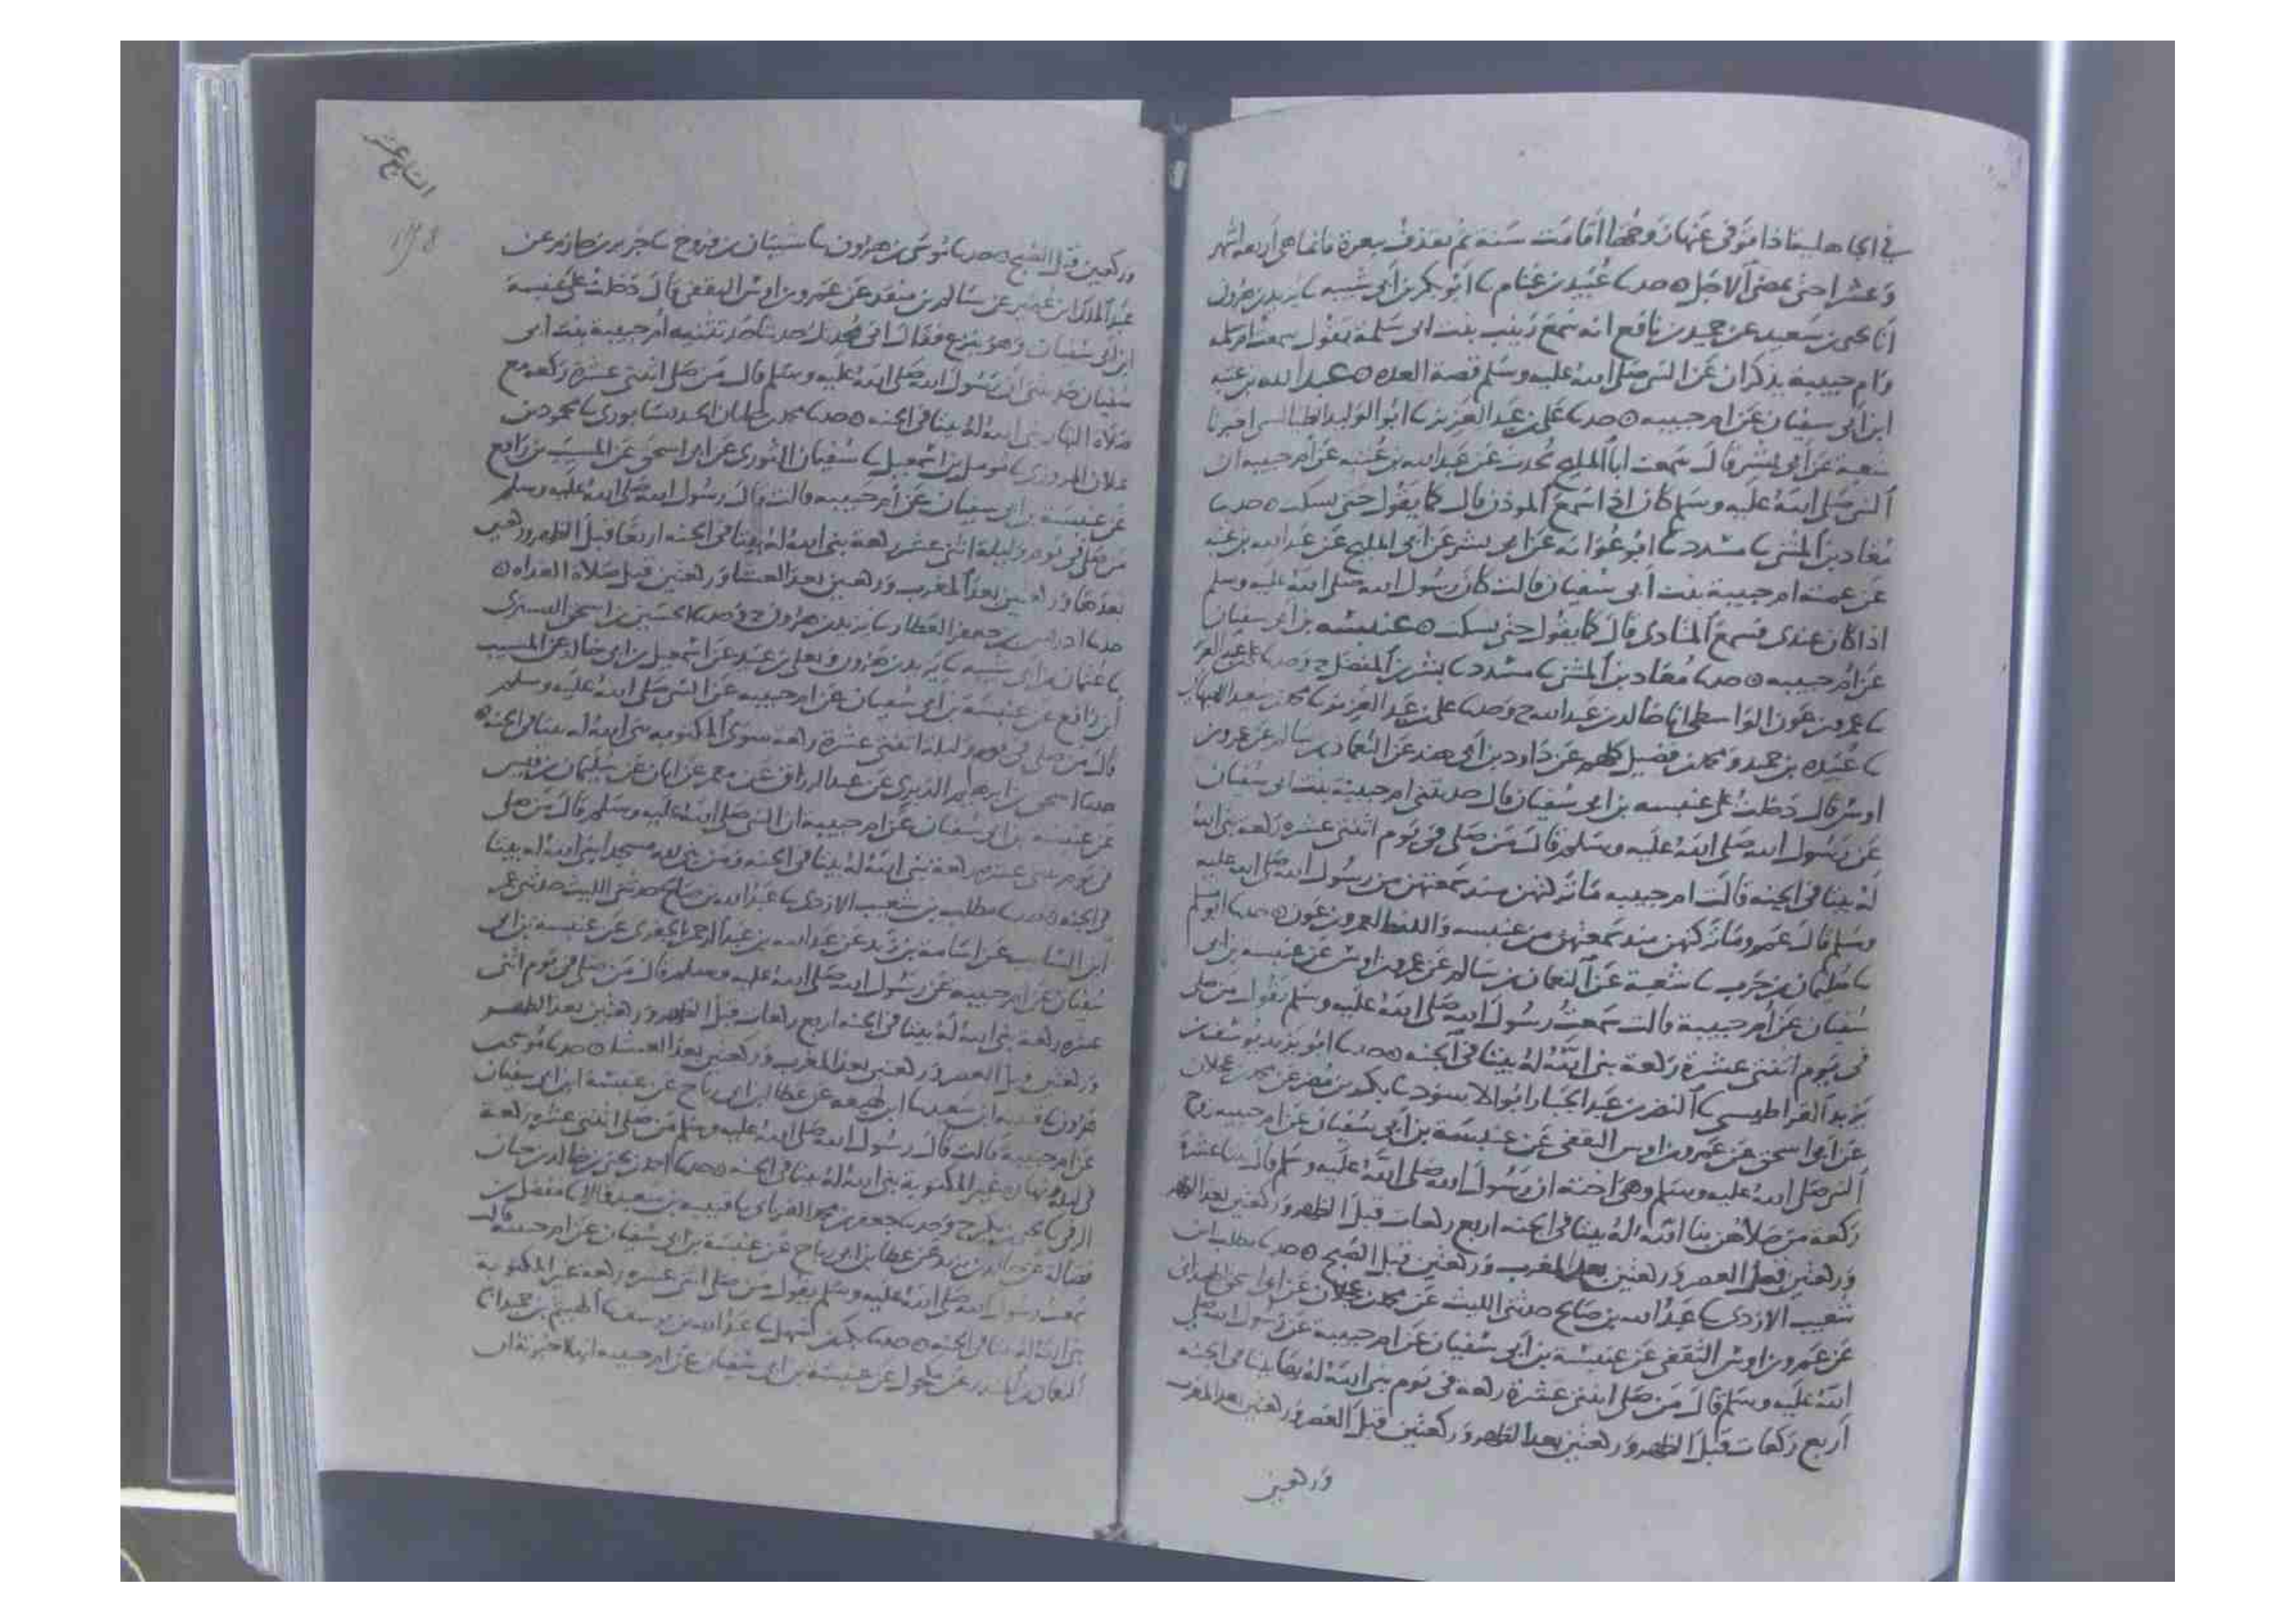 في الجاهلية اذا توفى عنها زوجها اقامت سنة ثم تقذف ببعرة فانما هي اربعة اشهر
وعشرا حتى يمضي الاجل ه حدثنا عبيد بن غنام نا ابو بكر بن ابي شيبة نا يزيد بن هرون
انا يحيى بن سعيد عن حميد بن نافع انه سمع زينب بنت ابي سلمة تقول سمعت ام سلمة
وام حبيبة يذكران عن النبي صلى الله عليه وسلم قصة العدة ه عبد الله بن عتبة
ابن ابي سفيان عن ام حبيبه ه حدثنا علي بن عبد العزيز نا ابو الوليد الطيالسي اخبرنا
شعبة عن ابي بشر قال سمعت ابا المليح يحدث عن عبد الله بن عتبة عن ام حبيبه ان
النبي صلى الله عليه وسلم كان اذا سمع الموذن قال كما يقول حتى يسكت ه حدثنا
معاذ بن المثنى نا مسدد نا ابو عوانه عن ابي بشر عن ابي المليح عن عبد الله بن عتبة
عن عمته ام حبيبة بنت ابي سفيان قالت كان رسول الله صلى الله عليه وسلم
اذا كان عندي فسمع المنادي قال كما يقول حتى يسكت ه عنبسه بن ابي سفيان
عن ام حبيبه ه حدثنا معاذ بن المثنى نا مسدد نا بشر بن المفضل ح وحدثنا علي بن عبد العزيز
نا عمرو بن عون الواسطي انا خالد بن عبد الله ح وحدثنا علي بن عبد العزيز نا محمد بن سعيد الاصبهاني
نا عبيده بن حميد ومحمد بن فضيل كلهم عن داود بن ابي هند عن النعمان بن سالم عن عمرو بن
اوس قال دخلت على عنبسه بن ابي سفيان قال حدثتني ام حبيبة بنت ابي سفيان
عن رسول الله صلى الله عليه وسلم قال من صلى في يوم اثنتي عشرة ركعة بنى الله
له بيتا في الجنه قالت ام حبيبه ما تركتهن منذ سمعتهن من رسول الله صلى الله عليه
وسلم قال عمرو ما تركتهن منذ سمعتهن من عنبسه واللفظ لعمرو بن عون ه حدثنا ابو مسلم
نا سليمان بن حرب نا شعبة عن النعمان بن سالم عن عمرو بن اوس عن عنبسه بن ابي
سفيان عن ام حبيبة قالت سمعت رسول الله صلى الله عليه وسلم يقول من صلى
في يوم اثنتي عشرة ركعة بنى الله له بيتا في الجنه ه حدثنا ابو يزيد يوسف بن
يزيد القراطيسي نا النضر بن عبد الجبار ابو الاسود نا بكر بن مضر عن محمد بن عجلان
عن ابي اسحق عن عمرو بن اوس الثقفي عن عنبسة بن ابي سفيان عن ام حبيبه زوج
النبي صلى الله عليه وسلم وهي اخته ان رسول الله صلى الله عليه وسلم قال ثنتا عشرة
ركعة من صلاهن بنا الله له بيتا في الجنه اربع ركعات قبل الظهر وركعتين بعد الظهر
وركعتين قبل العصر وركعتين بعد المغرب وركعتين قبل الصبح ه حدثنا مطلب بن
شعيب الازدي نا عبد الله بن صالح حدثني الليث عن محمد بن عجلان عن ابي اسحق الهمداني
عن عمرو بن اوس الثقفي عن عنبسة بن ابي سفيان عن ام حبيبة عن رسول الله صلى
الله عليه وسلم قال من صلى اثنتي عشرة ركعة في يوم بنى الله له بها بيتا في الجنه
اربع ركعات قبل الظهر وركعتين بعد الظهر وركعتين قبل العصر وركعتين بعد المغرب
وركعتين
السابع عشر
وركعتين قبل الصبح ه حدثنا موسى بن هرون نا شيبان بن فروخ نا جرير بن حازم عن
عبد الملك بن عمير عن سالم بن منقذ عن عمرو بن اوس الثقفي قال دخلت على عنبسة
ابن ابي سفيان وهو ينزع فقال اني محدثك حديثا حدثتنيه ام حبيبة بنت ابي
سفيان حدثتني ان رسول الله صلى الله عليه وسلم قال من صلى اثنتي عشرة ركعه مع
صلاة النهار بنى الله له بيتا في الجنه ه حدثنا محمد بن النيسابوري نا محمود بن
غيلان المروزي نا مومل بن اسمعيل نا سفيان الثوري عن ابي اسحق عن المسيب بن رافع
عن عنبسة بن ابي سفيان عن ام حبيبه قالت قال رسول الله صلى الله عليه وسلم
من صلى في يوم وليلة اثنتي عشرة ركعة بنى الله له بيتا في الجنه اربعا قبل الظهر وركعتين
بعدها وركعتين بعد المغرب وركعتين بعد العشا وركعتين قبل صلاة الغداه ه
حدثنا ادريس بن جعفر العطار نا يزيد بن هرون ح وحدثنا الحسين بن اسحق التستري
نا عثمان بن ابي شيبه نا يزيد بن هرون ويعلى بن عبيد عن اسمعيل بن ابي خالد عن المسيب
ابن رافع عن عنبسة بن ابي سفيان عن ام حبيبه عن النبي صلى الله عليه وسلم
قال من صلى في يوم وليلة اثنتي عشرة ركعة سوى المكتوبه بنى الله له بيتا في الجنه ه
حدثنا اسحق بن ابرهيم الدبري عن عبد الرزاق عن معمر عن ابان عن سليمان بن قيس
عن عنبسه بن ابي سفيان عن ام حبيبة ان النبي صلى الله عليه وسلم قال من صلى
في يوم ثنتي عشرة ركعة بنى الله له بيتا في الجنه ومن بنى لله مسجدا بنى الله له بيتا
في الجنه ه حدثنا مطلب بن شعيب الازدي نا عبد الله بن صالح حدثني الليث حدثني
ابن السائب عن اسامة بن زيد عن عبد الله بن عبد الرحمن عن عنبسه بن ابي
سفيان عن ام حبيبه عن رسول الله صلى الله عليه وسلم قال من صلى في يوم اثنتي
عشرة ركعة بنى الله له بيتا في الجنه اربع ركعات قبل الظهر وركعتين بعد الظهر
وركعتين قبل العصر وركعتين بعد المغرب وركعتين بعد العشا ه حدثنا موسى بن
هرون نا قتيبه بن سعيد نا ابن لهيعه عن عطا بن ابي رباح عن عنبسة ابن ابي سفيان
عن ام حبيبة قالت قال رسول الله صلى الله عليه وسلم من صلى اثنتي عشرة ركعة
في ليله ونهاره غير المكتوبة بنى الله له بيتا في الجنه ه حدثنا احمد بن يحيى بن خالد بن حيان
الرقي نا ح وحدثنا جعفر بن محمد الفريابي نا قتيبه بن سعيد قالا نا مفضل بن
فضالة عن بن يزيد عن عطا بن ابي رباح عن عنبسة بن ابي سفيان عن ام حبيبة قالت
سمعت رسول الله صلى الله عليه وسلم يقول من صلى اثنتي عشرة ركعة غير المكتوبة
بنى الله له بيتا في الجنه ه حدثنا بكر بن سهل نا عبد الله بن يوسف نا الهيثم بن حميد انا
النعمان بن المنذر عن مكحول عن عنبسة بن ابي سفيان عن ام حبيبه انها اخبرته ان